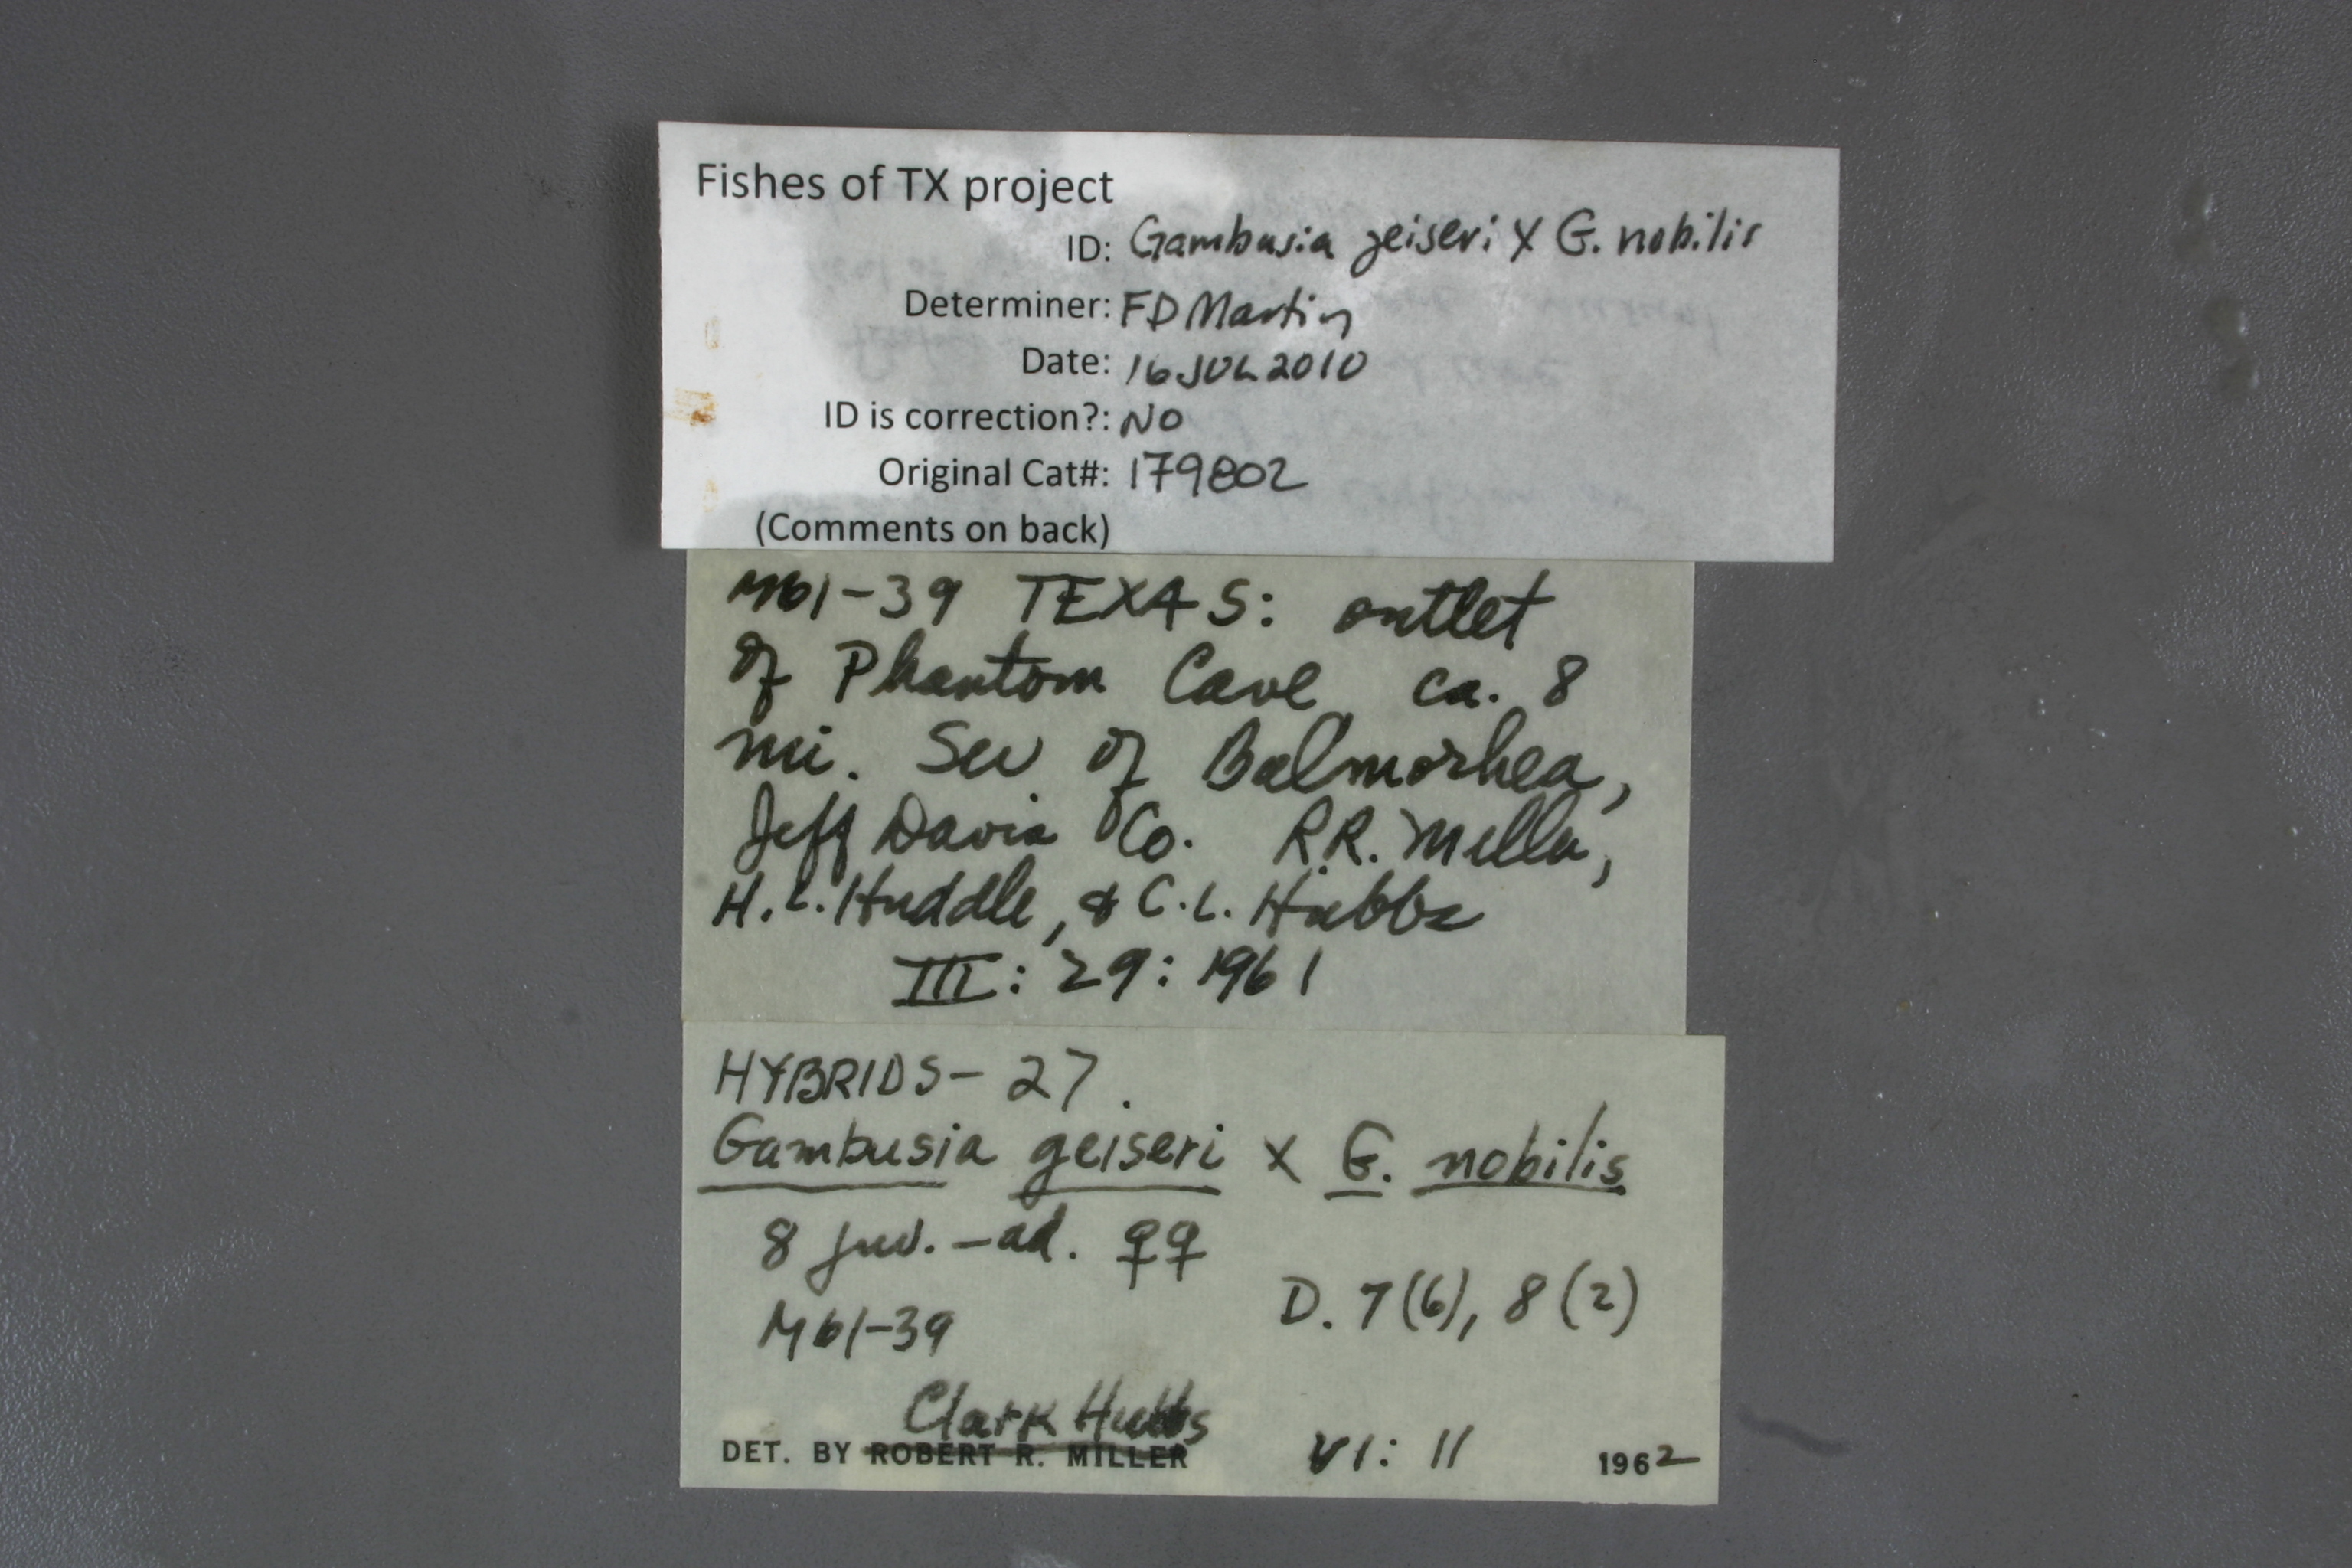 Fishes of TX project
ID: Gambusia geiseri X G. nobilis
Determiner: FD Martin
Date: 16 JUL 2010
ID is correction?: NO
Original Cat#: 179802
(Comments on back)
M61-39 TEXAS: outlet
of Phantom Cave ca. 8
mi. SW of Balmorhea,
Jeff Davis Co. R.R. Miller,
H.L. Huddle, & C.L. Hubbs
III: 29: 1961
HYBRIDS- 27.
Gambusia geiseri x G. nobilis
8 juv. - ad. ♀♀
D. 7(6), 8(2)
M61-39
Clark Hubbs
DET. BY ROBERT R. MILLER VI: 11 1962